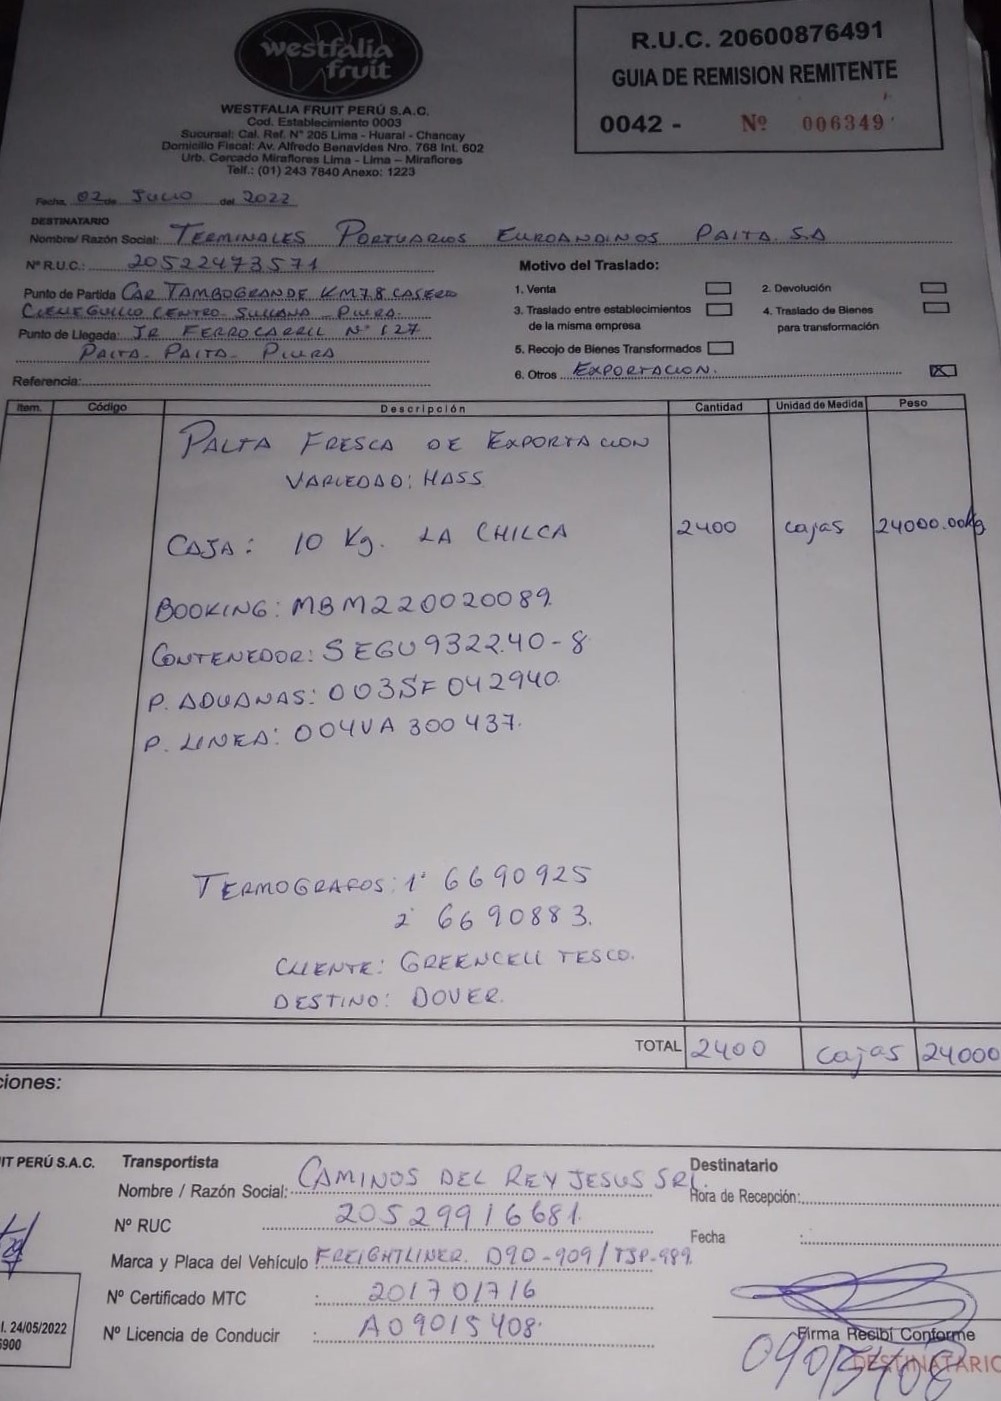 westfalia
fruit
WESTFALIA FRUIT PERÚ S.A.C.
Cod. Establecimiento 0003
Sucursal: Cal. Ref. N° 205 Lima - Huaral - Chancay
Domicilio Fiscal: Av. Alfredo Benavides Nro. 768 Int. 602
Urb. Cercado Miraflores Lima - Lima – Miraflores
Telf.: (01) 243 7840 Anexo: 1223
R.U.C. 20600876491
GUIA DE REMISION REMITENTE
0042 - Nº 006349
Fecha, 02 de JULIO del 2022
DESTINATARIO
Nombre/ Razón Social: TERMINALES PORTUARIOS EUROANDINOS PAITA. S.A
N° R.U.C.: 20522473571
Punto de Partida CAR TAMBOGRANDE KM 7.8 CASERIO
CIENEGUILLO CENTRO SULLANA - PIURA.
Punto de Llegada: JR FERROCARRIL N° 127
PAITA - PAITA - PIURA
Referencia:
Motivo del Traslado:
1. Venta
2. Devolución
3. Traslado entre establecimientos
de la misma empresa
4. Traslado de Bienes
para transformación
5. Recojo de Bienes Transformados
6. Otros EXPORTACION. X
Item. Código Descripción Cantidad Unidad de Medida Peso
PALTA FRESCA DE EXPORTACION
VARIEDAD: HASS
CAJA: 10 Kg. LA CHILCA 2400 cajas 24000.00kg
BOOKING: MBM220020089
CONTENEDOR: SEGU932240-8
P. ADUANAS: 003SF042940
P. LINEA: 004UA300437.
TERMOGRAFOS: 1° 6690925
2° 6690883.
CLIENTE: GREENCELL TESCO.
DESTINO: DOVER.
TOTAL 2400 cajas 24000
ciones:
IT PERÚ S.A.C.
Transportista
Nombre / Razón Social: CAMINOS DEL REY JESUS SRL
Nº RUC 20529916681.
Marca y Placa del Vehículo FREIGHTLINER. D90-909/TJP-989
Nº Certificado MTC : 201701716
Nº Licencia de Conducir : A09015408.
Destinatario
Hora de Recepción:
Fecha :
l. 24/05/2022
6900
Firma Recibí Conforme
DESTINATARIO
09015408